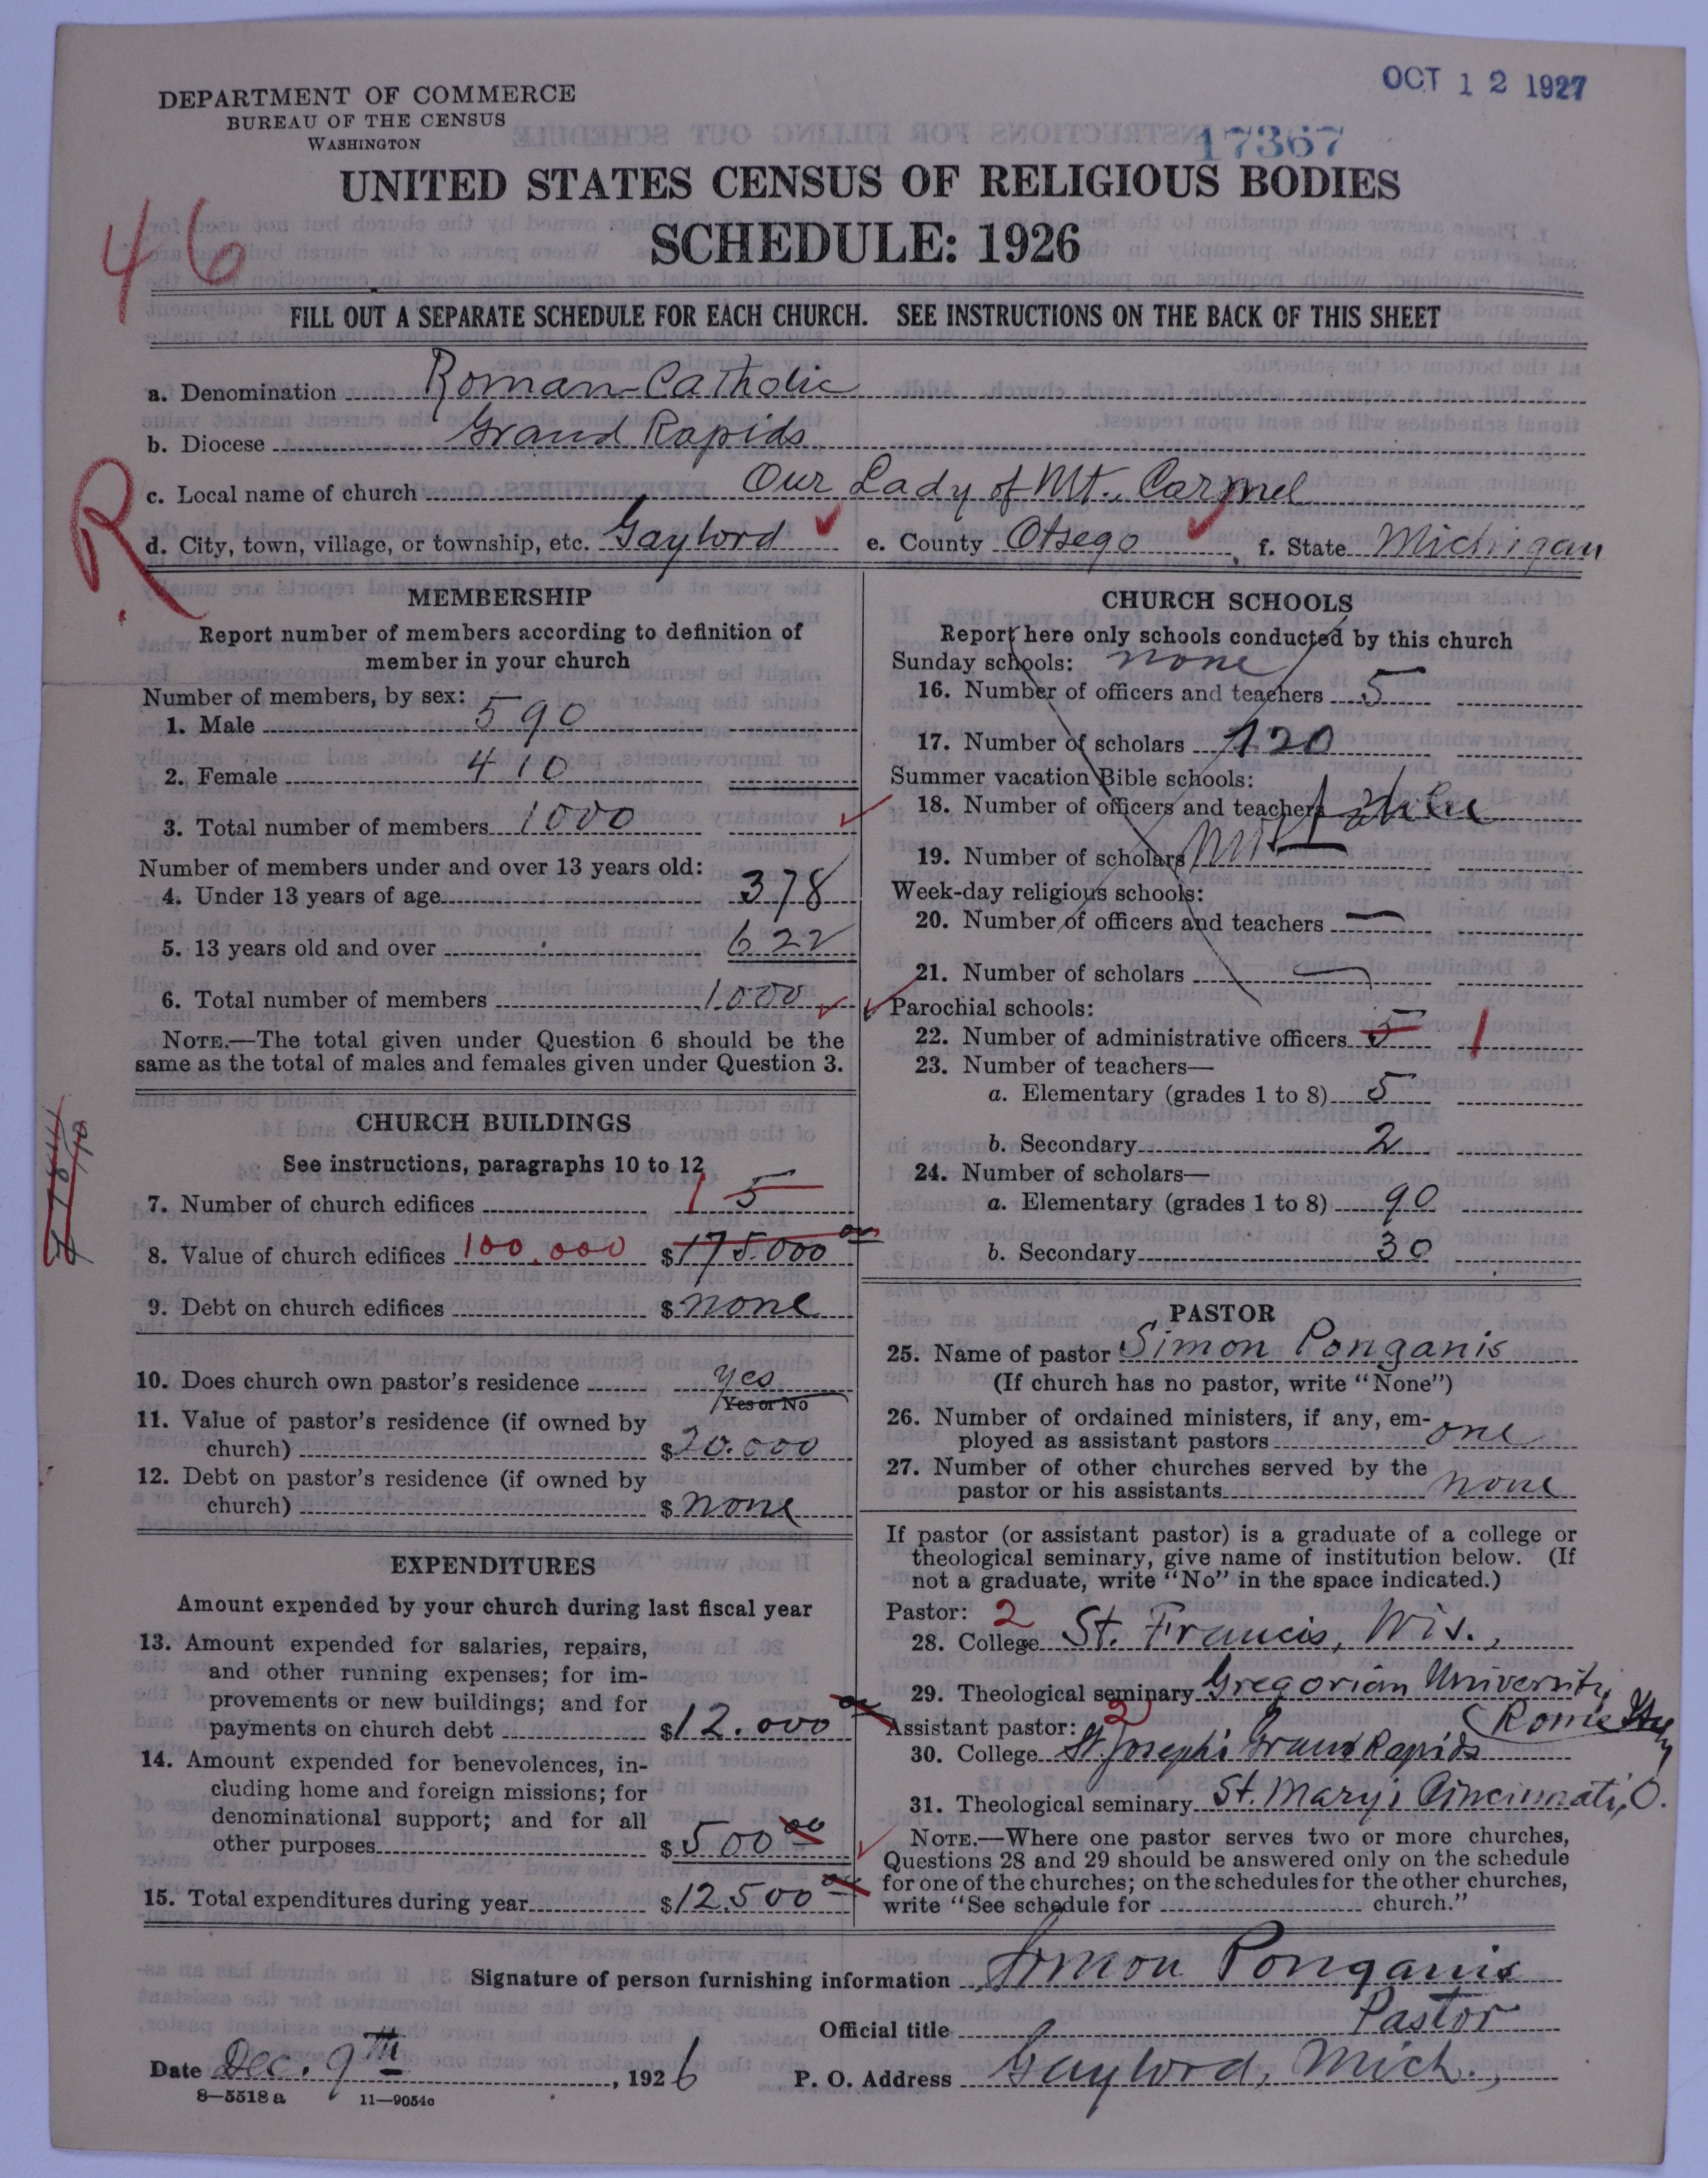 OCT 12 1927
DEPARTMENT OF COMMERCE
BUREAU OF THE CENSUS
WASHINGTON
17367
UNITED STATES CENSUS OF RELIGIOUS BODIES
SCHEDULE: 1926
46
FILL OUT A SEPARATE SCHEDULE FOR EACH CHURCH. SEE INSTRUCTIONS ON THE BACK OF THIS SHEET
a. Denomination Roman-Catholic
b. Diocese Grand Rapids
c. Local name of church Our Lady of Mt. Carmel
R
d. City, town, village, or township, etc. Gaylord e. County Otsego, f. State Michigan
MEMBERSHIP
Report number of members according to definition of
member in your church
Number of members, by sex:
1. Male 590
2. Female 410
3. Total number of members 1000
Number of members under and over 13 years old:
4. Under 13 years of age 378
5. 13 years old and over 622
6. Total number of members 1000
NOTE.—The total given under Question 6 should be the
same as the total of males and females given under Question 3.
CHURCH BUILDINGS
See instructions, paragraphs 10 to 12
7. Number of church edifices 1 5
8. Value of church edifices 100,000 $175.000 00
9. Debt on church edifices $ none
10. Does church own pastor's residence yes
Yes or No
11. Value of pastor's residence (if owned by
church) $20.000
12. Debt on pastor's residence (if owned by
church) $ none
EXPENDITURES
Amount expended by your church during last fiscal year
13. Amount expended for salaries, repairs,
and other running expenses; for im-
provements or new buildings; and for
payments on church debt $12.000 00
14. Amount expended for benevolences, in-
cluding home and foreign missions; for
denominational support; and for all
other purposes $500 00
15. Total expenditures during year $12.500 00
CHURCH SCHOOLS
Report here only schools conducted by this church
Sunday schools: none
16. Number of officers and teachers 5
17. Number of scholars 120
Summer vacation Bible schools:
18. Number of officers and teachers
19. Number of scholars
Week-day religious schools:
20. Number of officers and teachers —
21. Number of scholars —
Parochial schools:
22. Number of administrative officers 5 1
23. Number of teachers—
a. Elementary (grades 1 to 8) 5
b. Secondary 2
24. Number of scholars—
a. Elementary (grades 1 to 8) 90
b. Secondary 30
PASTOR
25. Name of pastor Simon Ponganis
(If church has no pastor, write "None")
26. Number of ordained ministers, if any, em-
ployed as assistant pastors one
27. Number of other churches served by the
pastor or his assistants none
If pastor (or assistant pastor) is a graduate of a college or
theological seminary, give name of institution below. (If
not a graduate, write "No" in the space indicated.)
Pastor: 2
28. College St. Francis, Wis.,
29. Theological seminary Gregorian University
(Rome Italy
Assistant pastor: 2
30. College St. Joseph's Grand Rapids
31. Theological seminary St. Mary's Cincinnati, O.
NOTE.—Where one pastor serves two or more churches,
Questions 28 and 29 should be answered only on the schedule
for one of the churches; on the schedules for the other churches,
write "See schedule for church."
Signature of person furnishing information Simon Ponganis
Official title Pastor
Date Dec. 9th, 1926 P. O. Address Gaylord, Mich.,
8—5518 a 11—9054c